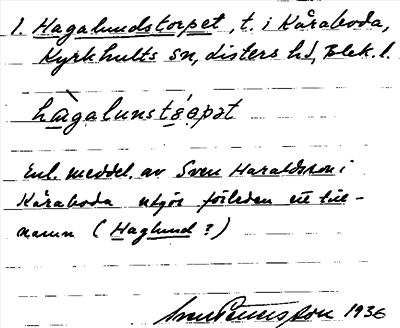 1. Hagalundstorpet, t. i Kåraboda,
Kyrkhults sn, Listers hd, Blek. l.
hàgalunstórpət
Enl. meddel. av Sven Haraldsson i
Kåraboda utgör förleden ett till-
namn (Haglund?)
Sven Benson 1936